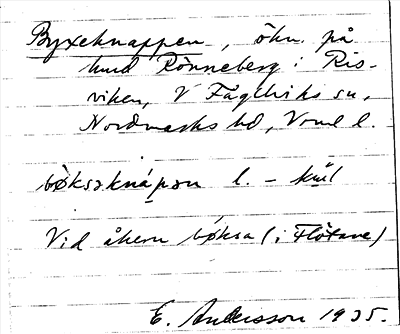 Byxeknappen, ökn. på
hmd Rönneberg i Ris-
viken, V Fågelviks sn,
Nordmarks hd, Vrml l.
bøksəknápən l. -
Vid åkern bøksa (i Flötane)
E. Andersson 1935.